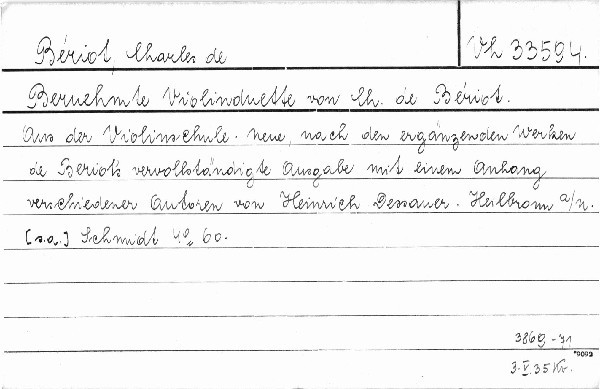 Bériot, Charles de
Vh 33594.
Beruehmte Violinduette von Ch. de Bériot.
Aus der Violinschule. Neue, nach den ergänzenden Werken
de Beriots vervollständigte Ausgabe mit einem Anhang
verschiedener Autoren von Heinrich Dessauer. Heilbronn a/N.
[s.a.] Schmidt 4° 60.
3869-71
*9093
3.V.35 Kr.